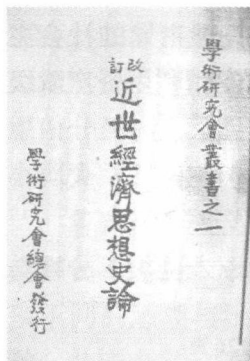 學術研究會叢書之一
改訂
近世經濟思想史論
學術研究會總會發行